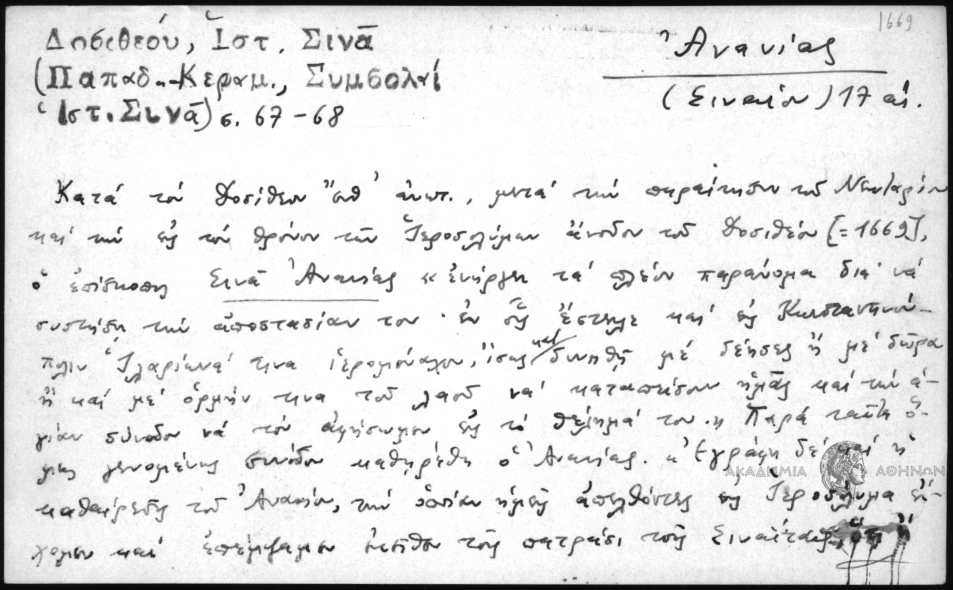 1669
Δοσιθεού, Ἱστ. Σινᾶ
(Παπαδ.-Κεραμ., Συμβολαί
Ἱστ. Σινᾶ) σ. 67-68
Ἀνανίας
(Σιναίου) 17 αἰ.
Κατά τόν Δοσίθεον ἔνθ' ἀνωτ., μετά τήν παραίτησιν τοῦ Νεκταρίου
καί τήν εἰς τόν θρόνον τῶν Ἱεροσολύμων ἄνοδον τοῦ Δοσιθέου [=1669],
ὁ ἐπίσκοπος Σινᾶ Ἀνανίας «ἐνήργει τά πλέον παράνομα διά νά
συστήσῃ τήν ἀποστασίαν του· ἐν οἷς ἔστειλε καί εἰς Κωνσταντινού-
πολιν Ἱλαρίωνά τινα ἱερομόναχον, ἴσως καί δυνηθῇ μέ δεήσεις ἤ μέ δῶρα
ἤ καί μέ ὁρμήν τινα τοῦ λαοῦ νά καταπείσουν ἡμᾶς καί τήν ἁ-
γίαν σύνοδον νά τόν ἀφήσωμεν εἰς τό θέλημά του.» Παρά ταῦτα ὅ-
μως γενομένης συνόδου καθῃρέθη ὁ Ἀνανίας. «Ἐγράφη δέ καί ἡ
καθαίρεσις τοῦ Ἀνανίου, τήν ὁποίαν ἡμεῖς ἀπελθόντες εἰς Ἱεροσόλυμα εἴ-
χομεν καί ἐπέμψαμεν ἐκεῖθεν τοῖς πατράσι τοῖς Σιναΐταις,
ΑΚΑΔΗΜΙΑ ΑΘΗΝΩΝ